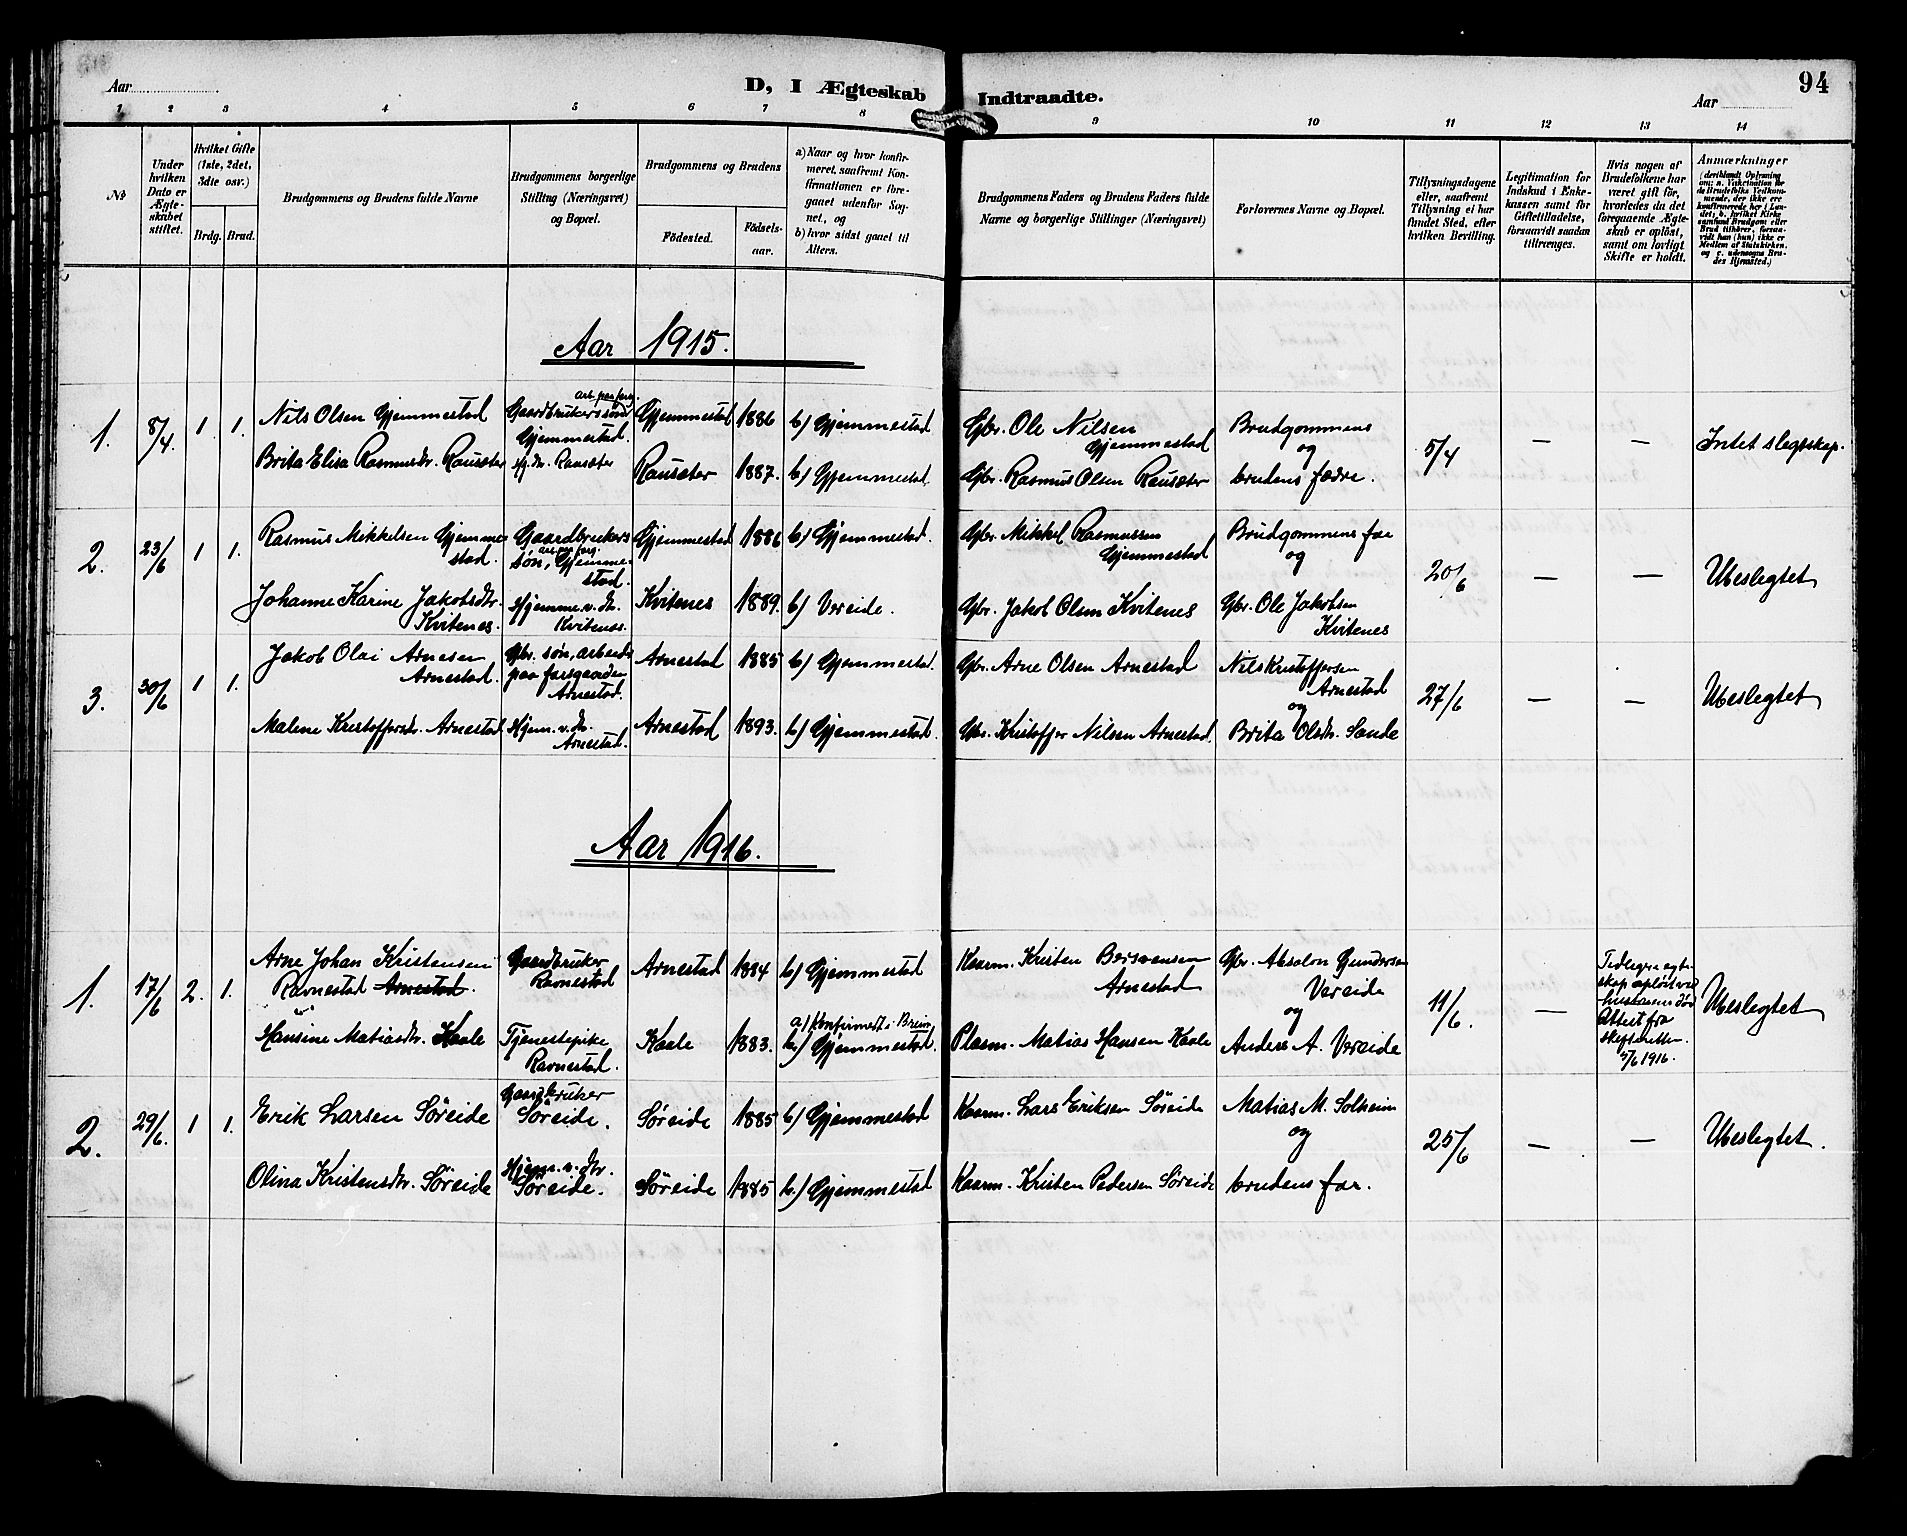 Aar
D, I Ægteskab Indtraadte.
Aar
94
1 2 3 4 5 6 7 8 9 10 11 12 13 14
No
Under hvilken Dato er Ægteskabet stiftet.
Hvilket Gifte (1ste, 2det, 3die osv.)
Brdg. Brud.
Brudgommens og Brudens fulde Navne
Brudgommens borgerlige Stilling (Næringsvei) og Bopæl.
Brudgommens og Brudens
Födested.
Födselsaar.
a) Naar og hvor konfirmeret, saafremt Konfirmationen er foregaaet udenför Sognet, og
b) hvor sidst gaaet til Alters.
Brudgommens Faders og Brudens Faders fulde Navne og borgerlige Stillinger (Næringsvei)
Forlovernes Navne og Bopæl.
Tillysningsdagene eller, saafremt Tillysning ei har fundet Sted, efter hvilken Bevilling.
Legitimation for Indskud i Enkekassen samt for Giftetilladelse, forsaavidt saadan tiltrænges.
Hvis nogen af Brudefolkene har været gift för, hvorledes da det foregaaende Ægteskab er oplöst, samt om lovligt Skifte er holdt.
Anmærkninger
(deriblandt Oplysning om: a. Vakcination for de Brudefolks Vedkommende, der ikke ere konfirmerede her i Landet; b. hvilket Kirkesamfund Brudgom eller Brud tilhörer, forsaavidt han (hun) ikke er Medlem af Statskirken. og c. udensogns Brudes Hjemsted.)
Aar 1915.
1. 8/4. 1. 1. Nils Olsen Gjemmestad Gaardbrukerssøn arb. paa farsg. Gjemmestad. Gjemmestad 1886 b) Gjemmestad Gbr. Ole Nilsen Gjemmestad Brudgommens og 5/4 — — Intet slegtskap.
Brita Elisa Rasmusdr. Rausæter Hj. dr. Rausæter Rausæter 1887. b) Gjemmestad Gbr. Rasmus Olsen Rausæter brudens fædre.
2. 23/6 1 1. Rasmus Mikkelsen Gjemmestad. Gaardbrukers søn, arb. paa farsg. Gjemmestad. Gjemmestad 1886 b) Gjemmestad. Gbr. Mikkel Rasmussen Gjemmestad Brudgommens far og 20/6 — — Ubeslegtet
Johanne Karine Jakobsdtr. Kvitenes. Hjemme v. dr. Kvitenes. Kvitenes 1889. b) Vereide. Gbr. Jakob Olsen Kvitenes Gbr. Ole Jakobsen Kvitenes
3. 30/6 1 1. Jakob Olai Arnesen Arnestad. Gbr. søn, arbeide paa farsgaarden Arnestad. Arnestad 1885 b) Gjemmestad. Gbr. Arne Olsen Arnestad Nils Kristoffersen Arnestad og 27/6 — — Ubeslegtet
Malene Kristoffersdr. Arnestad Hjem. v. dr. Arnestad. Arnestad 1893. b) Gjemmestad. Gbr. Kristoffer Nilsen Arnestad. Brita Olsdr. Sande
Aar 1916.
1. 17/6 2. 1. Arne Johan Kristensen Ravnestad Arnestad. Gaardbruker Ravnestad Arnestad 1884 b) Gjemmestad Kaarm. Kristen Bersvensen Arnestad Gbr. Absalon Gundersen Vereide og 11/6. — Tidligere egteskap opløst ved hustruens død Attest fra skifteretten 5/6 1916. Ubeslegtet
Hansine Matiasdr. Kaale Tjenestepike Ravnestad. Kaale 1883. a) Konfirmert i Breim b.) Gjemmestad. Plasm. Matias Hansen Kaale Anders A. Vereide
2. 29/6. 1 1. Erik Larsen Søreide Gaardbruker Søreide. Søreide 1885 b) Gjemmestad Kaarm. Lars Eriksen Søreide Matias M. Solheim og 25/6 — — Ubeslegtet.
Olina Kristensdr. Søreide Hjem. v. dtr. Søreide. Søreide 1885 b.) Gjemmestad Kaarm. Kristen Pedersen Søreide brudens far.